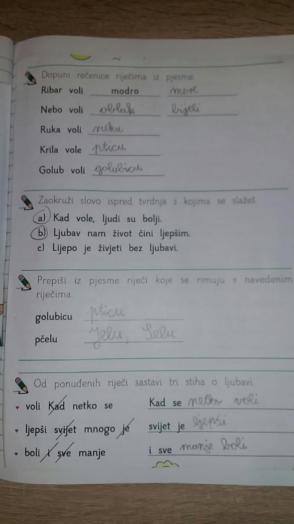 Dopuni rečenice riječima iz pjesme.
Ribar voli modro more
Nebo voli oblak bijeli
Ruka voli neku
Krila vole pticu
Golub voli golubicu
Zaokruži slovo ispred tvrdnja s kojima se slažeš.
a) Kad vole, ljudi su bolji.
b) Ljubav nam život čini ljepšim.
c) Lijepo je živjeti bez ljubavi.
Prepiši iz pjesme riječi koje se rimuju s navedenim
riječima.
golubicu pticu
pčelu Jelu,
Od ponuđenih riječi sastavi tri stiha o ljubavi.
voli Kad netko se Kad se netko voli
ljepši svijet mnogo je svijet je ljepši
boli i sve manje i sve manje boli